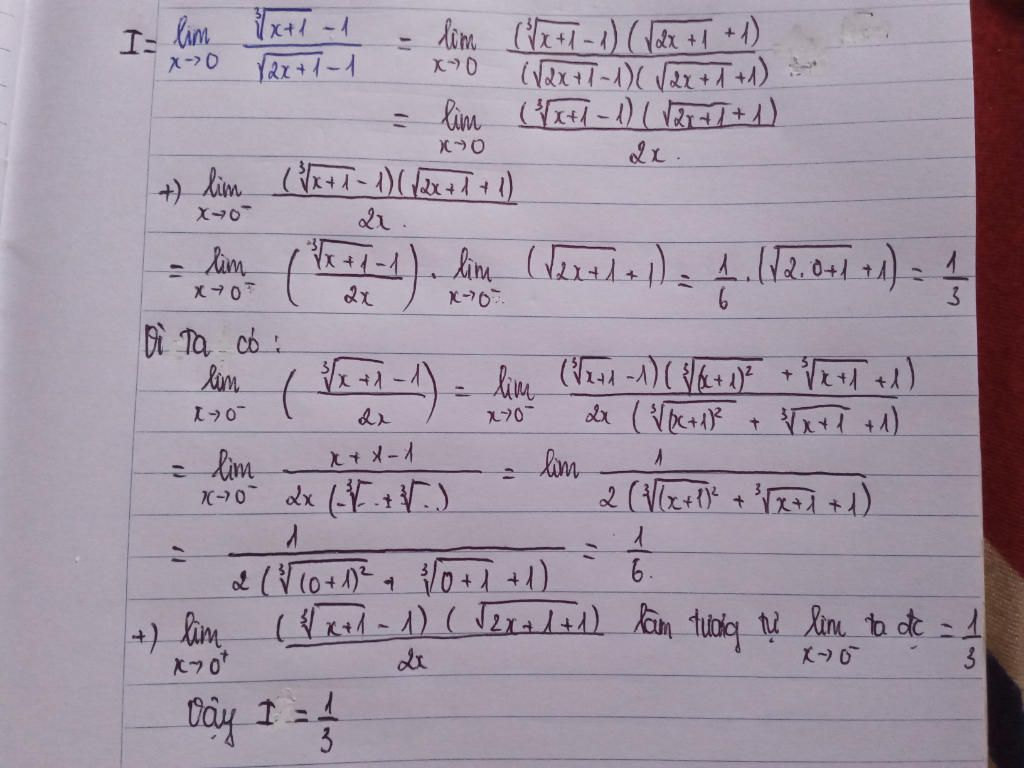 I = lim x→0 (∛(x+1) - 1)/(√(2x+1) - 1) = lim x→0 ((∛(x+1) - 1)(√(2x+1) + 1))/((√(2x+1) - 1)(√(2x+1) + 1))
= lim x→0 ((∛(x+1) - 1)(√(2x+1) + 1))/(2x.)
+) lim x→0⁻ ((∛(x+1) - 1)(√(2x+1) + 1))/(2x.)
= lim x→0⁻ ((∛(x+1) - 1)/(2x)) . lim x→0⁻ (√(2x+1) + 1) = 1/6 . (√(2.0+1) + 1) = 1/3
Vì ta có :
lim x→0⁻ ((∛(x+1) - 1)/(2x)) = lim x→0⁻ ((∛(x+1) - 1)(∛((x+1)²) + ∛(x+1) + 1))/(2x (∛((x+1)²) + ∛(x+1) + 1))
= lim x→0⁻ (x + 1 - 1)/(2x (∛.. + ∛..)) = lim 1/(2 (∛((x+1)²) + ∛(x+1) + 1))
= 1/(2 (∛((0+1)²) + ∛(0+1) + 1)) = 1/6.
+) lim x→0⁺ ((∛(x+1) - 1)(√(2x+1+1)))/(2x) làm tương tự lim x→0⁻ ta đc = 1/3
Vậy I = 1/3